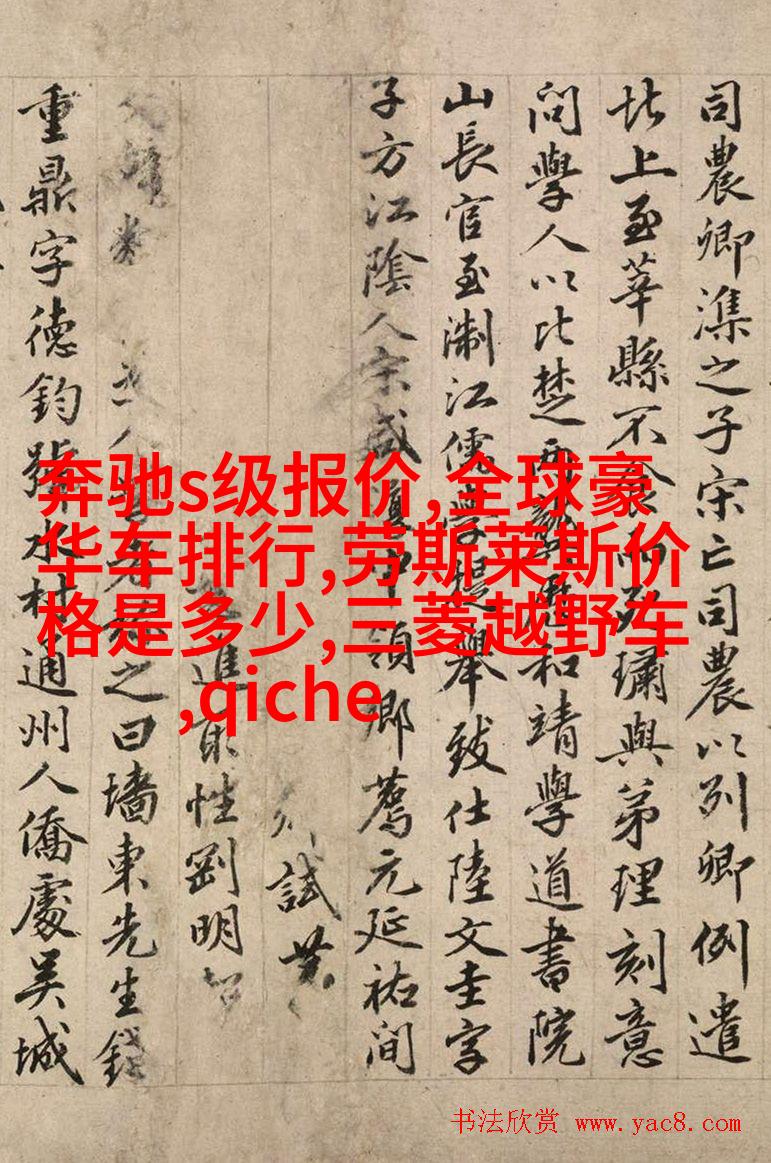 司農卿潗之子宋亡司農以列卿例遣
北上至莘縣不食而死璛與弟理刻意
問學人以比楚兩龔歷和靖學道書院
山長官至淛江儒學提舉致仕陸文圭字
子方江陰人宋咸淳中領鄉薦元延祐間
試
進取性剛明
人之曰墻東先生錢
重鼎字德鈞號水村通州人僑處吳城
奔驰s级报价,全球豪
华车排行,劳斯莱斯价
格是多少,三菱越野车
,qiche
书法欣赏 www.yac8.com